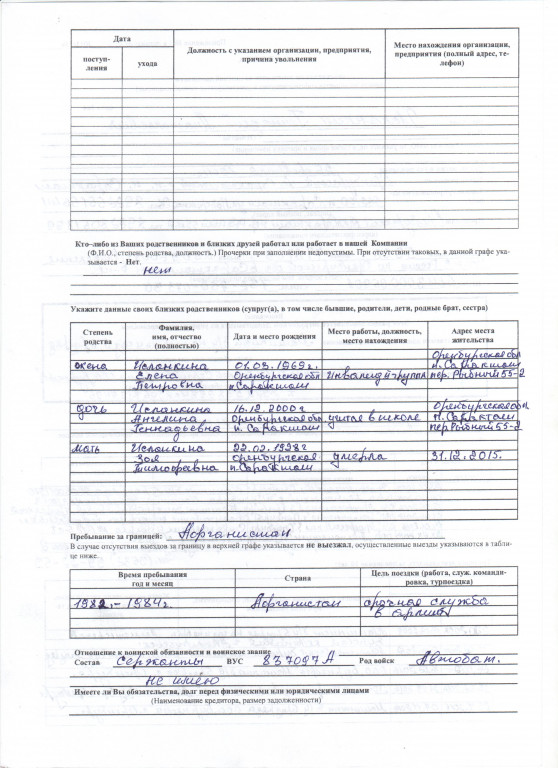 Дата
Должность с указанием организации, предприятия, причина увольнения
Место нахождения организации, предприятия (полный адрес, те-
лефон)
поступ-
ления
ухода
Кто–либо из Ваших родственников и близких друзей работал или работает в нашей Компании
(Ф.И.О., степень родства, должность.) Прочерки при заполнении недопустимы. При отсутствии таковых, в данной графе ука-
зывается - Нет.
нет
Укажите данные своих близких родственников (супруг(а), в том числе бывшие, родители, дети, родные брат, сестра)
Степень родства
Фамилия, имя, отчество (полностью)
Дата и место рождения
Место работы, должность, место нахождения
Адрес места жительства
Оренбургская обл
жена Исланкина 01.03.1969г. п. Саракташ
Елена Оренбургская обл Инвалид II группы пер. Рыбный 55-2
Петровна п. Саракташ
дочь Исланкина 16.12.2000г Оренбургская обл
Ангелина Оренбургская обл учится в школе п. Саракташ
Геннадьевна п. Саракташ пер Рыбный 55-2
мать Исланкина 22.02.1928г
Зоя Оренбургская умерла 31.12.2015.
Тимофеевна п. Саракташ
Пребывание за границей: Афганистан
В случае отсутствия выездов за границу в верхней графе указывается не выезжал, осуществленные выезды указываются в табли-
це ниже.
Время пребывания год и месяц
Страна
Цель поездки (работа, служ. команди-
ровка, турпоездка)
1982г.- 1984г. Афганистан срочная служба
в армии
Отношение к воинской обязанности и воинское звание
Состав Сержанты ВУС 837097А Род войск Автобат.
не имею
Имеете ли Вы обязательства, долг перед физическими или юридическими лицами
(Наименование кредитора, размер задолженности)